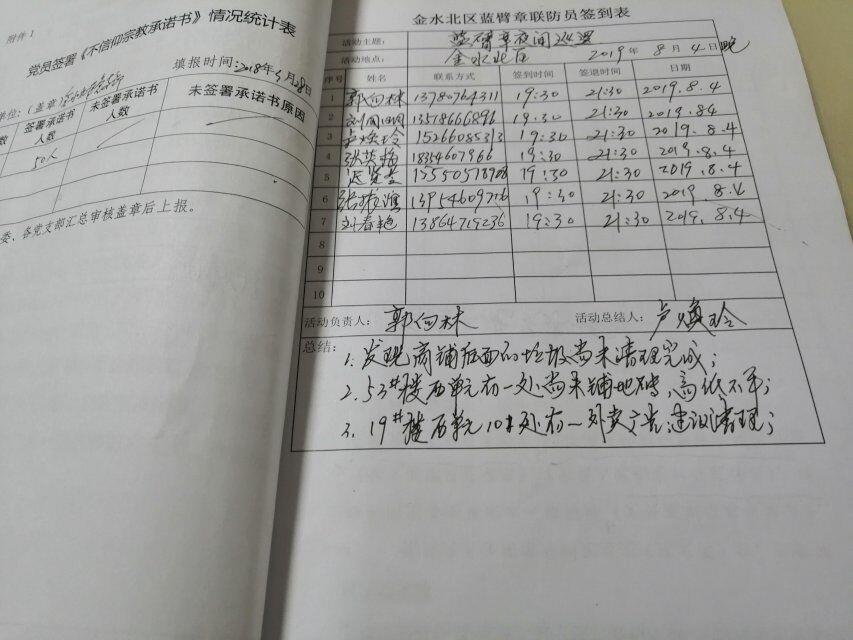 附件1
党员签署《不信仰宗教承诺书》情况统计表
填报时间:2018年5月28日
单位:(盖章)
数 签署承诺书人数 未签署承诺书人数 未签署承诺书原因
50人
委、各党支部汇总审核盖章后上报。
金水北区蓝臂章联防员签到表
活动主题: 蓝臂章夜间巡逻
活动地点: 金水北区 2019年8月4日晚
序号 姓名 联系方式 签到时间 签退时间 日期
1 郭向林 13780764311 19:30 21:30 2019.8.4
2 刘国明 13518666896 19:30 21:30 2019.8.4
3 卢焕玲 15266085313 19:30 21:30 2019.8.4
4 张英梅 18354607966 19:30 21:30 2019.8.4
5 19:30 21:30 2019.8.4
6 19:30 21:30 2019.8.4
7 刘春艳 13864719236 19:30 21:30 2019.8.4
8
9
10
活动负责人: 郭向林 活动总结人: 卢焕玲
总结: 1. 发现商铺后面的垃圾尚未清理完成;
2. 53#楼西单元有一处尚未铺地砖,高低不平;
3. 19#楼西单元10#处有一外卖广告;建议清理;